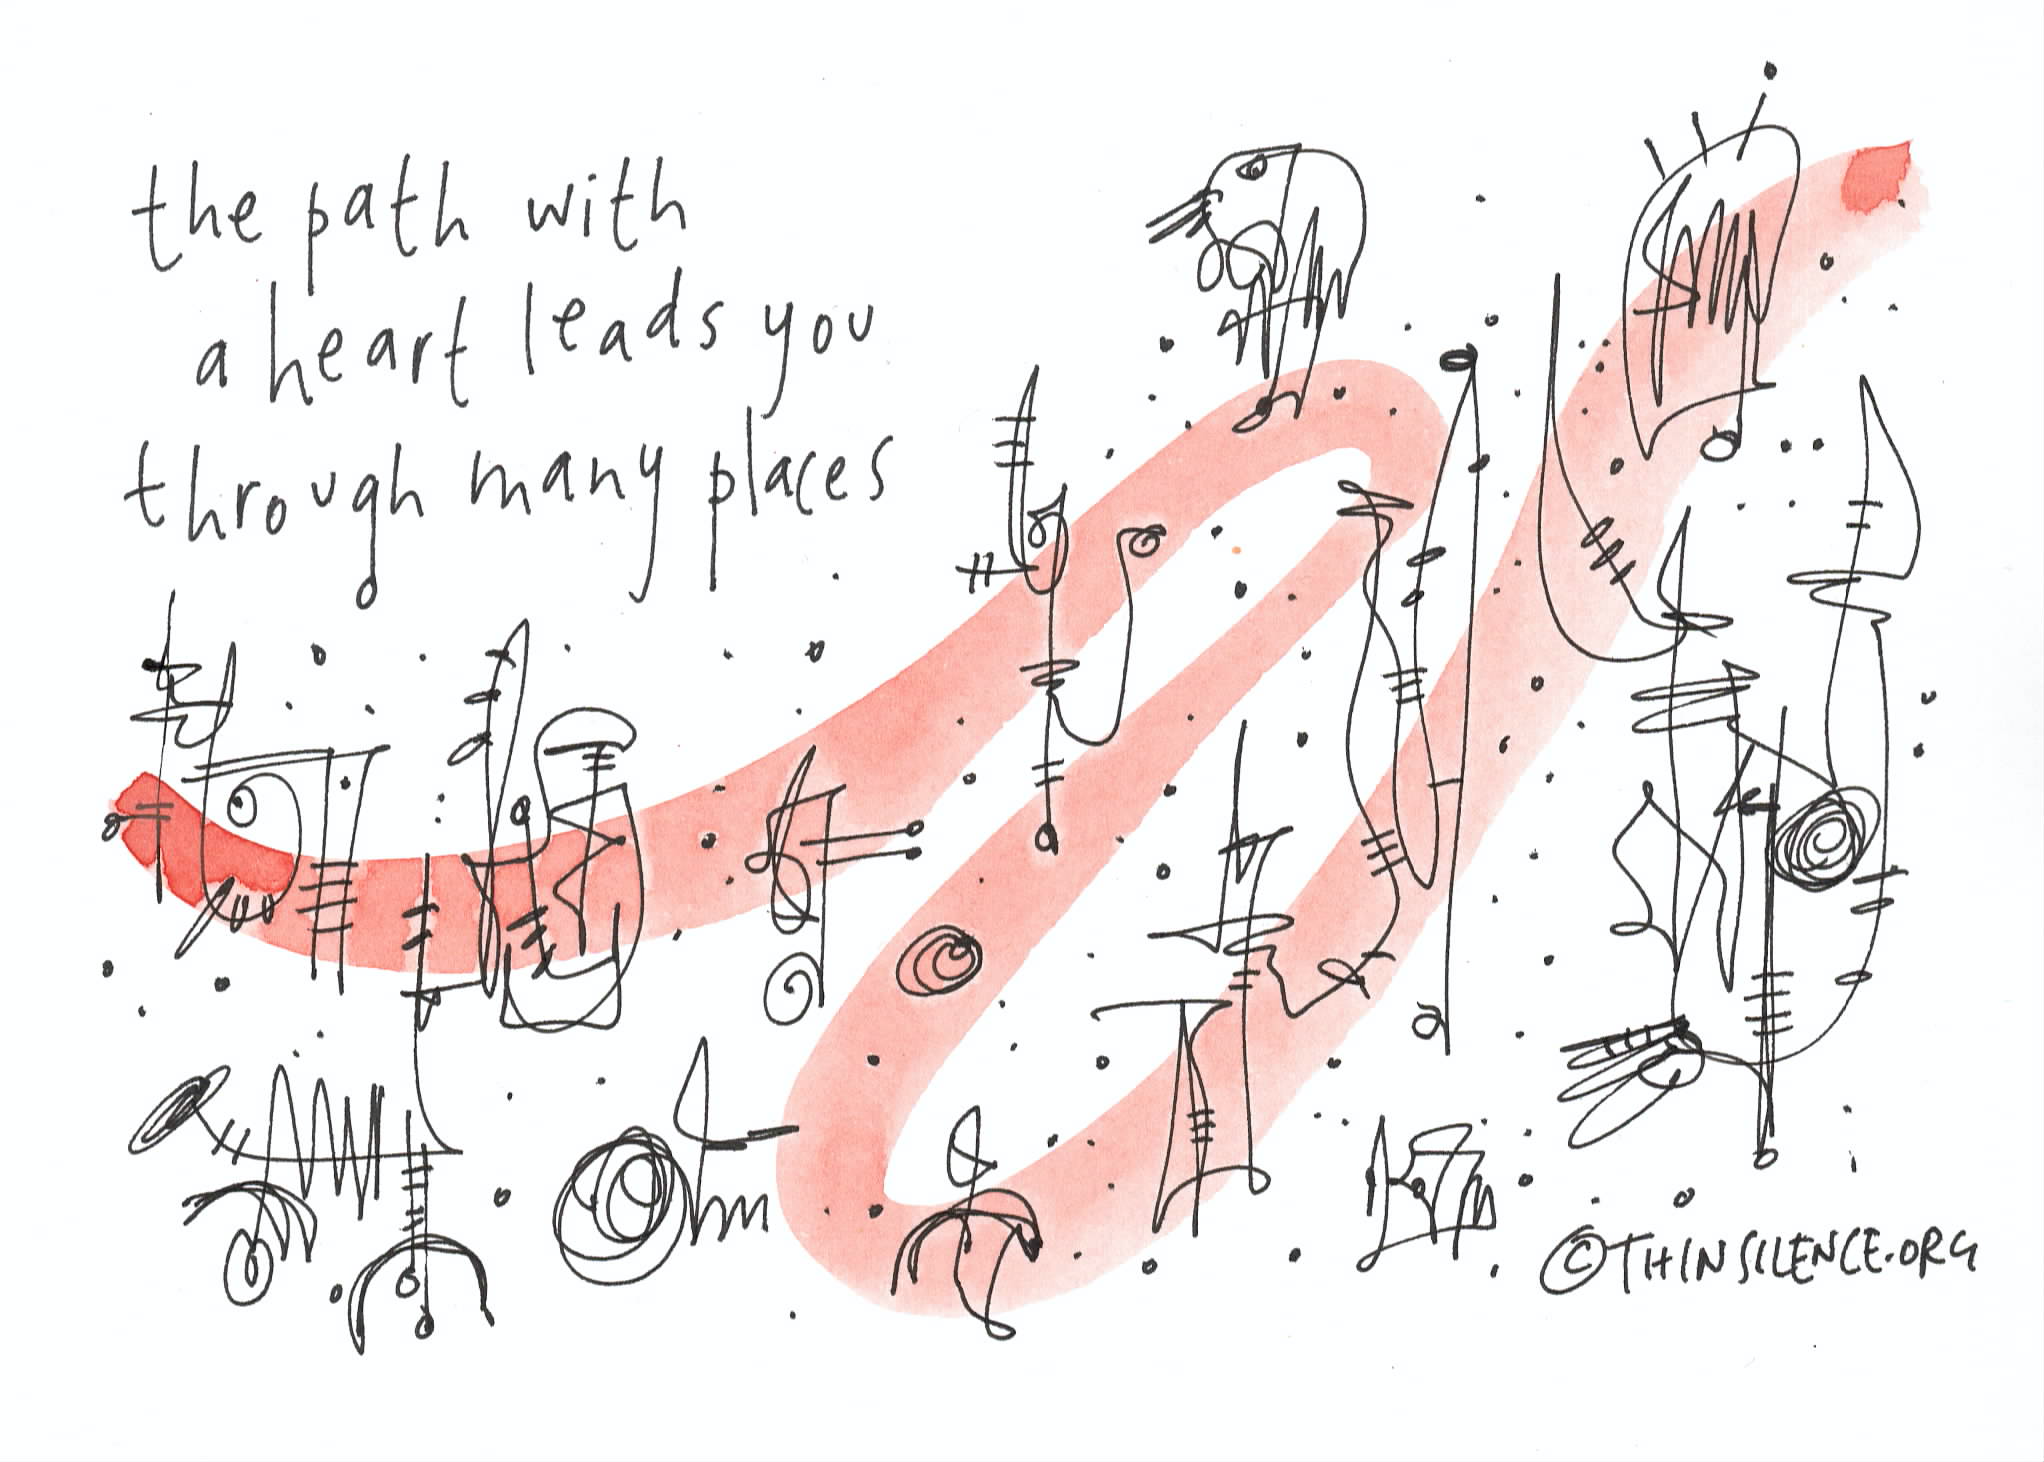 the path with
a heart leads you
through many places
©THINSILENCE.ORG